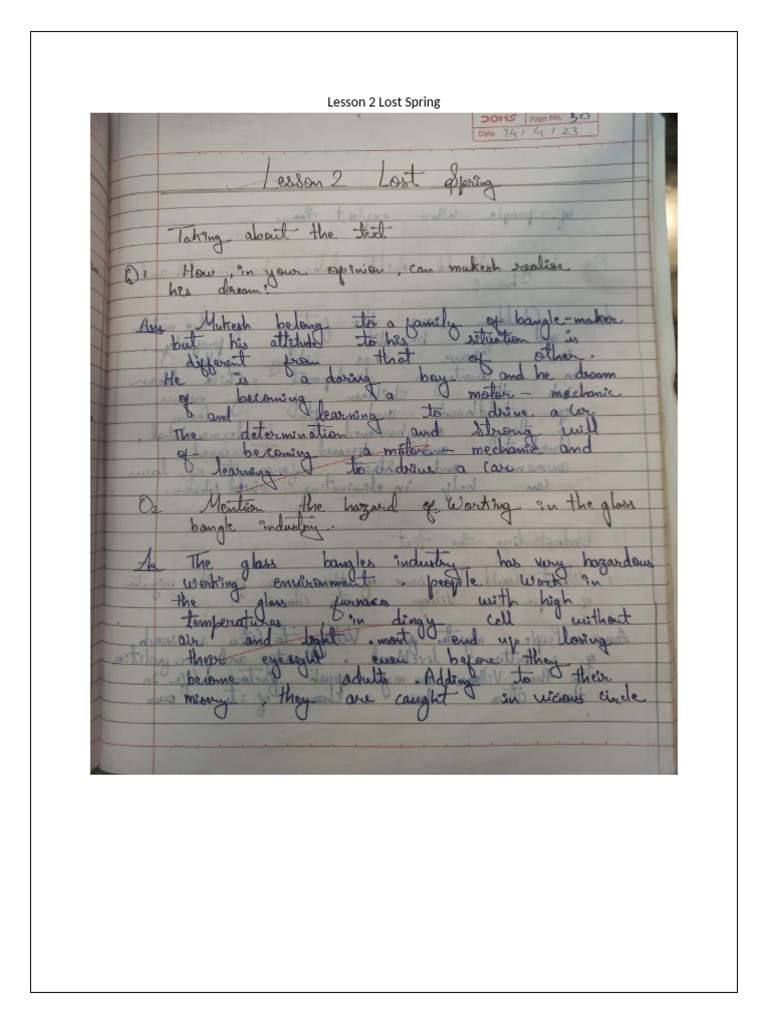 Lesson 2 Lost Spring
DOMS Page No. 30
Date 24/4/23
Lesson 2 Lost Spring
Taking about the text
Q1. How, in your opinion, can mukesh realise
his dream?
Ans Mukesh belong to a family of bangle-maker.
but his attitude to his situation is
different from that of other.
He is a daring boy and he dream
of becoming a motor - mechanic
and learning to drive a car
The determination and strong will
of becoming a motor mechanic and
learning to drive a car
Q2 Mention the hazard of Working in the glass
bangle industry.
An The glass bangles industry has very hazardous
working environment. people work in
the glass furnaces with high
temperatures in dingy cell without
air and light. most end up losing
their eyesight even before they
become adults. Adding to their
misery, they are caught in vicious circle